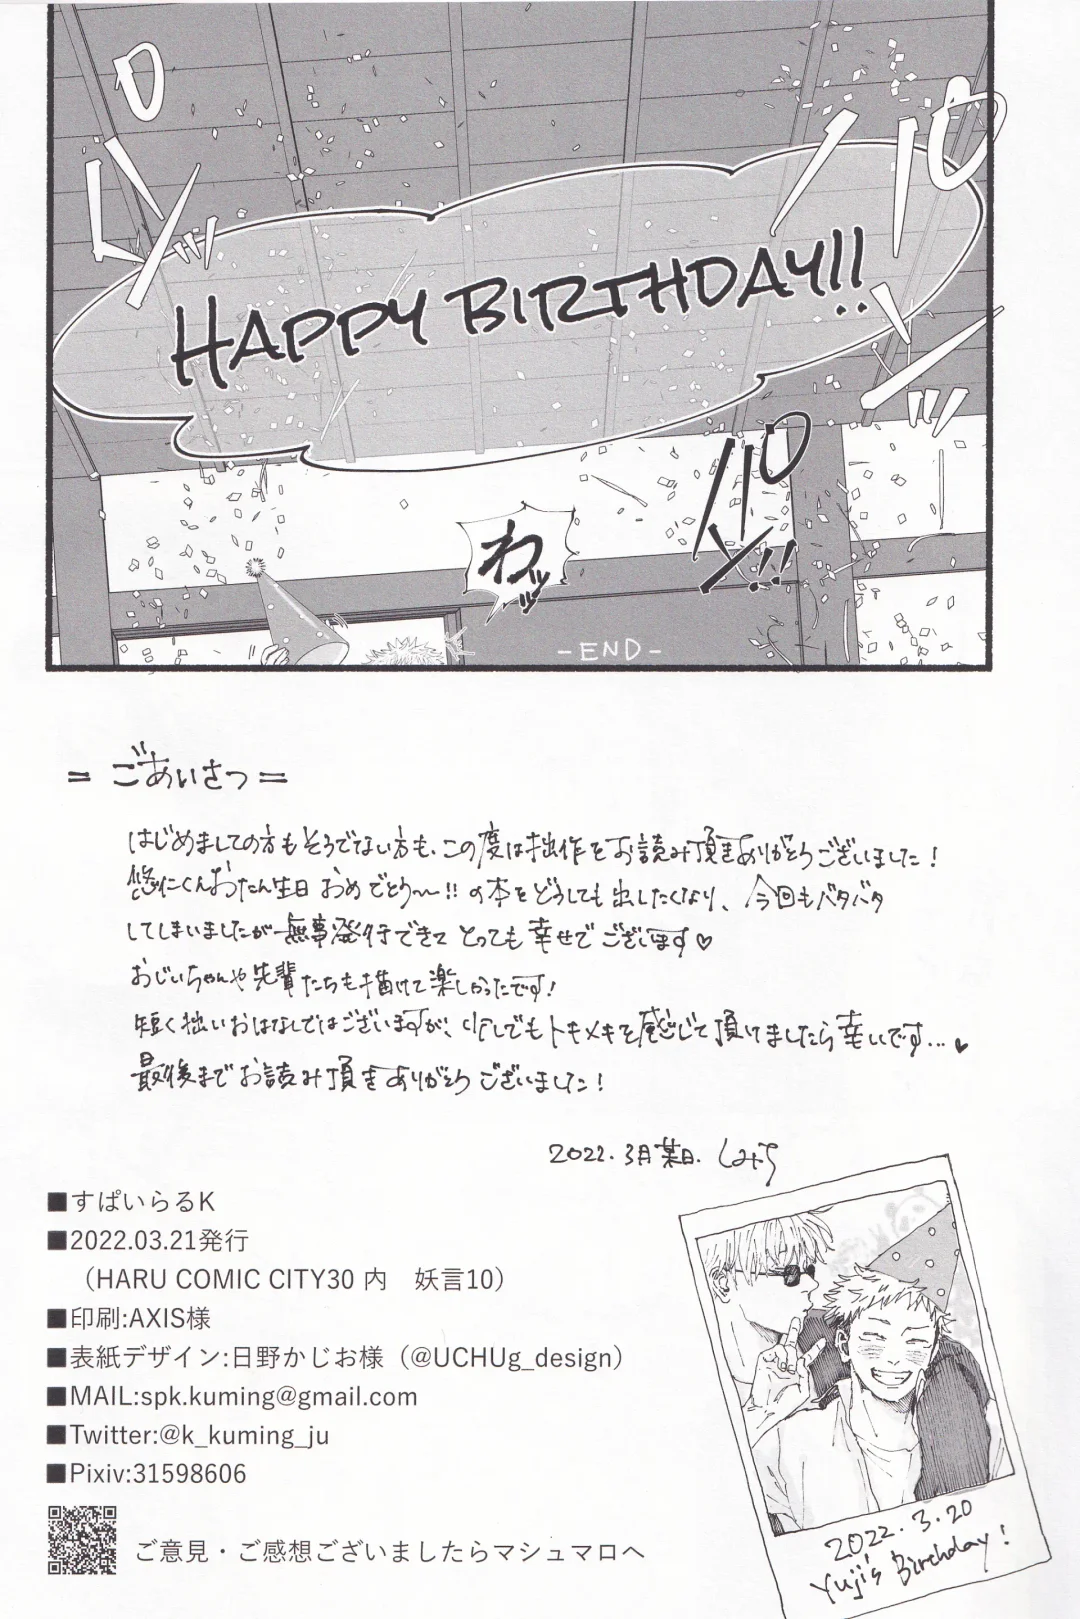 パンッ
パンッ
HAPPY BIRTHDAY!!
パンッ!!
わッ
-END-
=ごあいさつ=
はじめましての方もそうでない方も、この度は拙作をお読み頂きありがとうございました!
悠仁くんおたん生日おめでとう〜!!の本をどうしても出したくなり、今回もバタバタ
してしまいましたが無事発行できてとっても幸せでございます♡
おじいちゃんや先輩たちも描けて楽しかったです!
短く拙いおはなしではございますが、少しでもトキメキを感じて頂けましたら幸いです…♥
最後までお読み頂きありがとうございました!
2022.3月某日.
■すぱいらるK
■2022.03.21発行
（HARU COMIC CITY30 内　妖言10）
■印刷:AXIS様
■表紙デザイン:日野かじお様（@UCHUg_design）
■MAIL:spk.kuming@gmail.com
■Twitter:@k_kuming_ju
■Pixiv:31598606
ご意見・ご感想ございましたらマシュマロへ
2022.3.20
Yuji's Birthday!